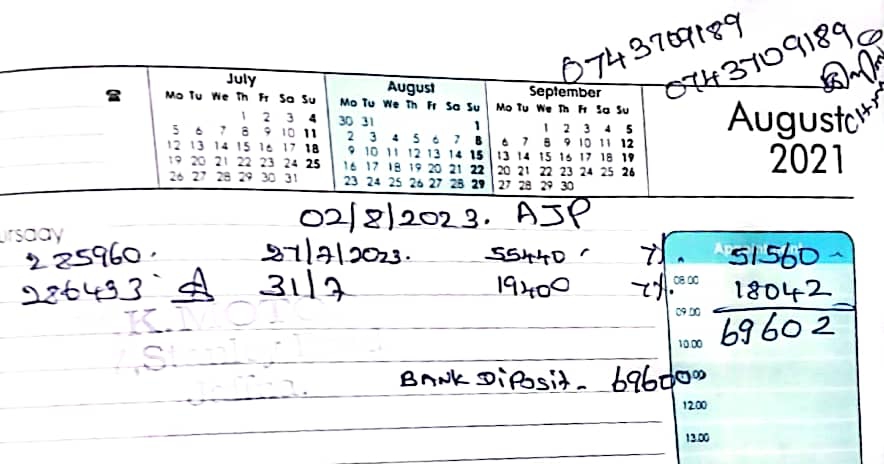 0743709189
0743709189
July August September
Mo Tu We Th Fr Sa Su Mo Tu We Th Fr Sa Su Mo Tu We Th Fr Sa Su
1 2 3 4 30 31 1 1 2 3 4 5
5 6 7 8 9 10 11 2 3 4 5 6 7 8 6 7 8 9 10 11 12
12 13 14 15 16 17 18 9 10 11 12 13 14 15 13 14 15 16 17 18 19
19 20 21 22 23 24 25 16 17 18 19 20 21 22 20 21 22 23 24 25 26
26 27 28 29 30 31 23 24 25 26 27 28 29 27 28 29 30
August
2021
02/8/2023. AJP
ursday
225960. 27/7/2023. 55440 7%. 51560
226493 A 31/7 19400 7%. 08.00 18042
09.00
K. MOTO
10.00 69602
Stanley
Jaffna.
BANK Diposit - 69600
12.00
13.00